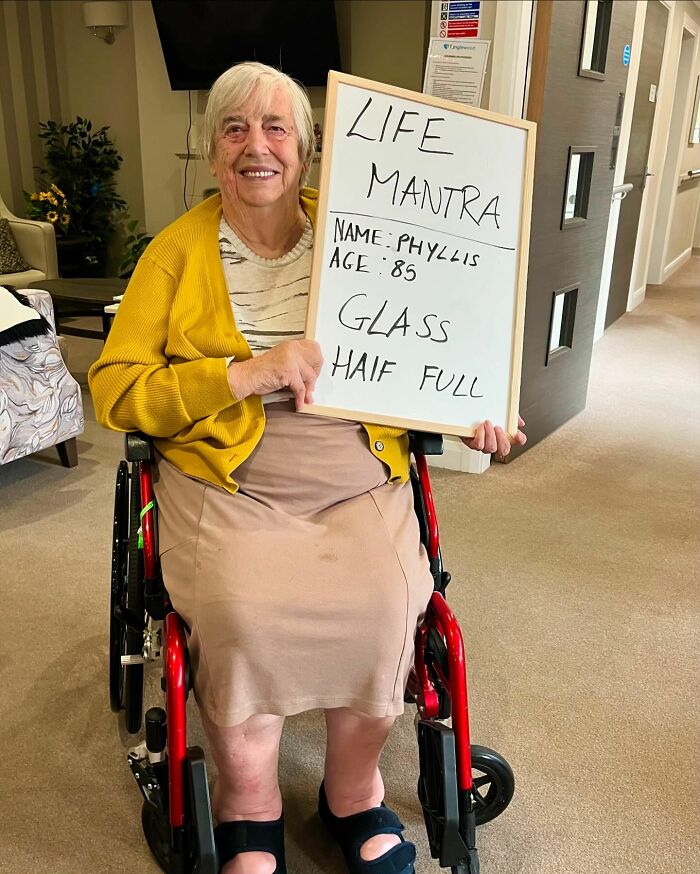 Tanglewood
LIFE
MANTRA
NAME: PHYLLIS
AGE: 85
GLASS
HAIF FULL